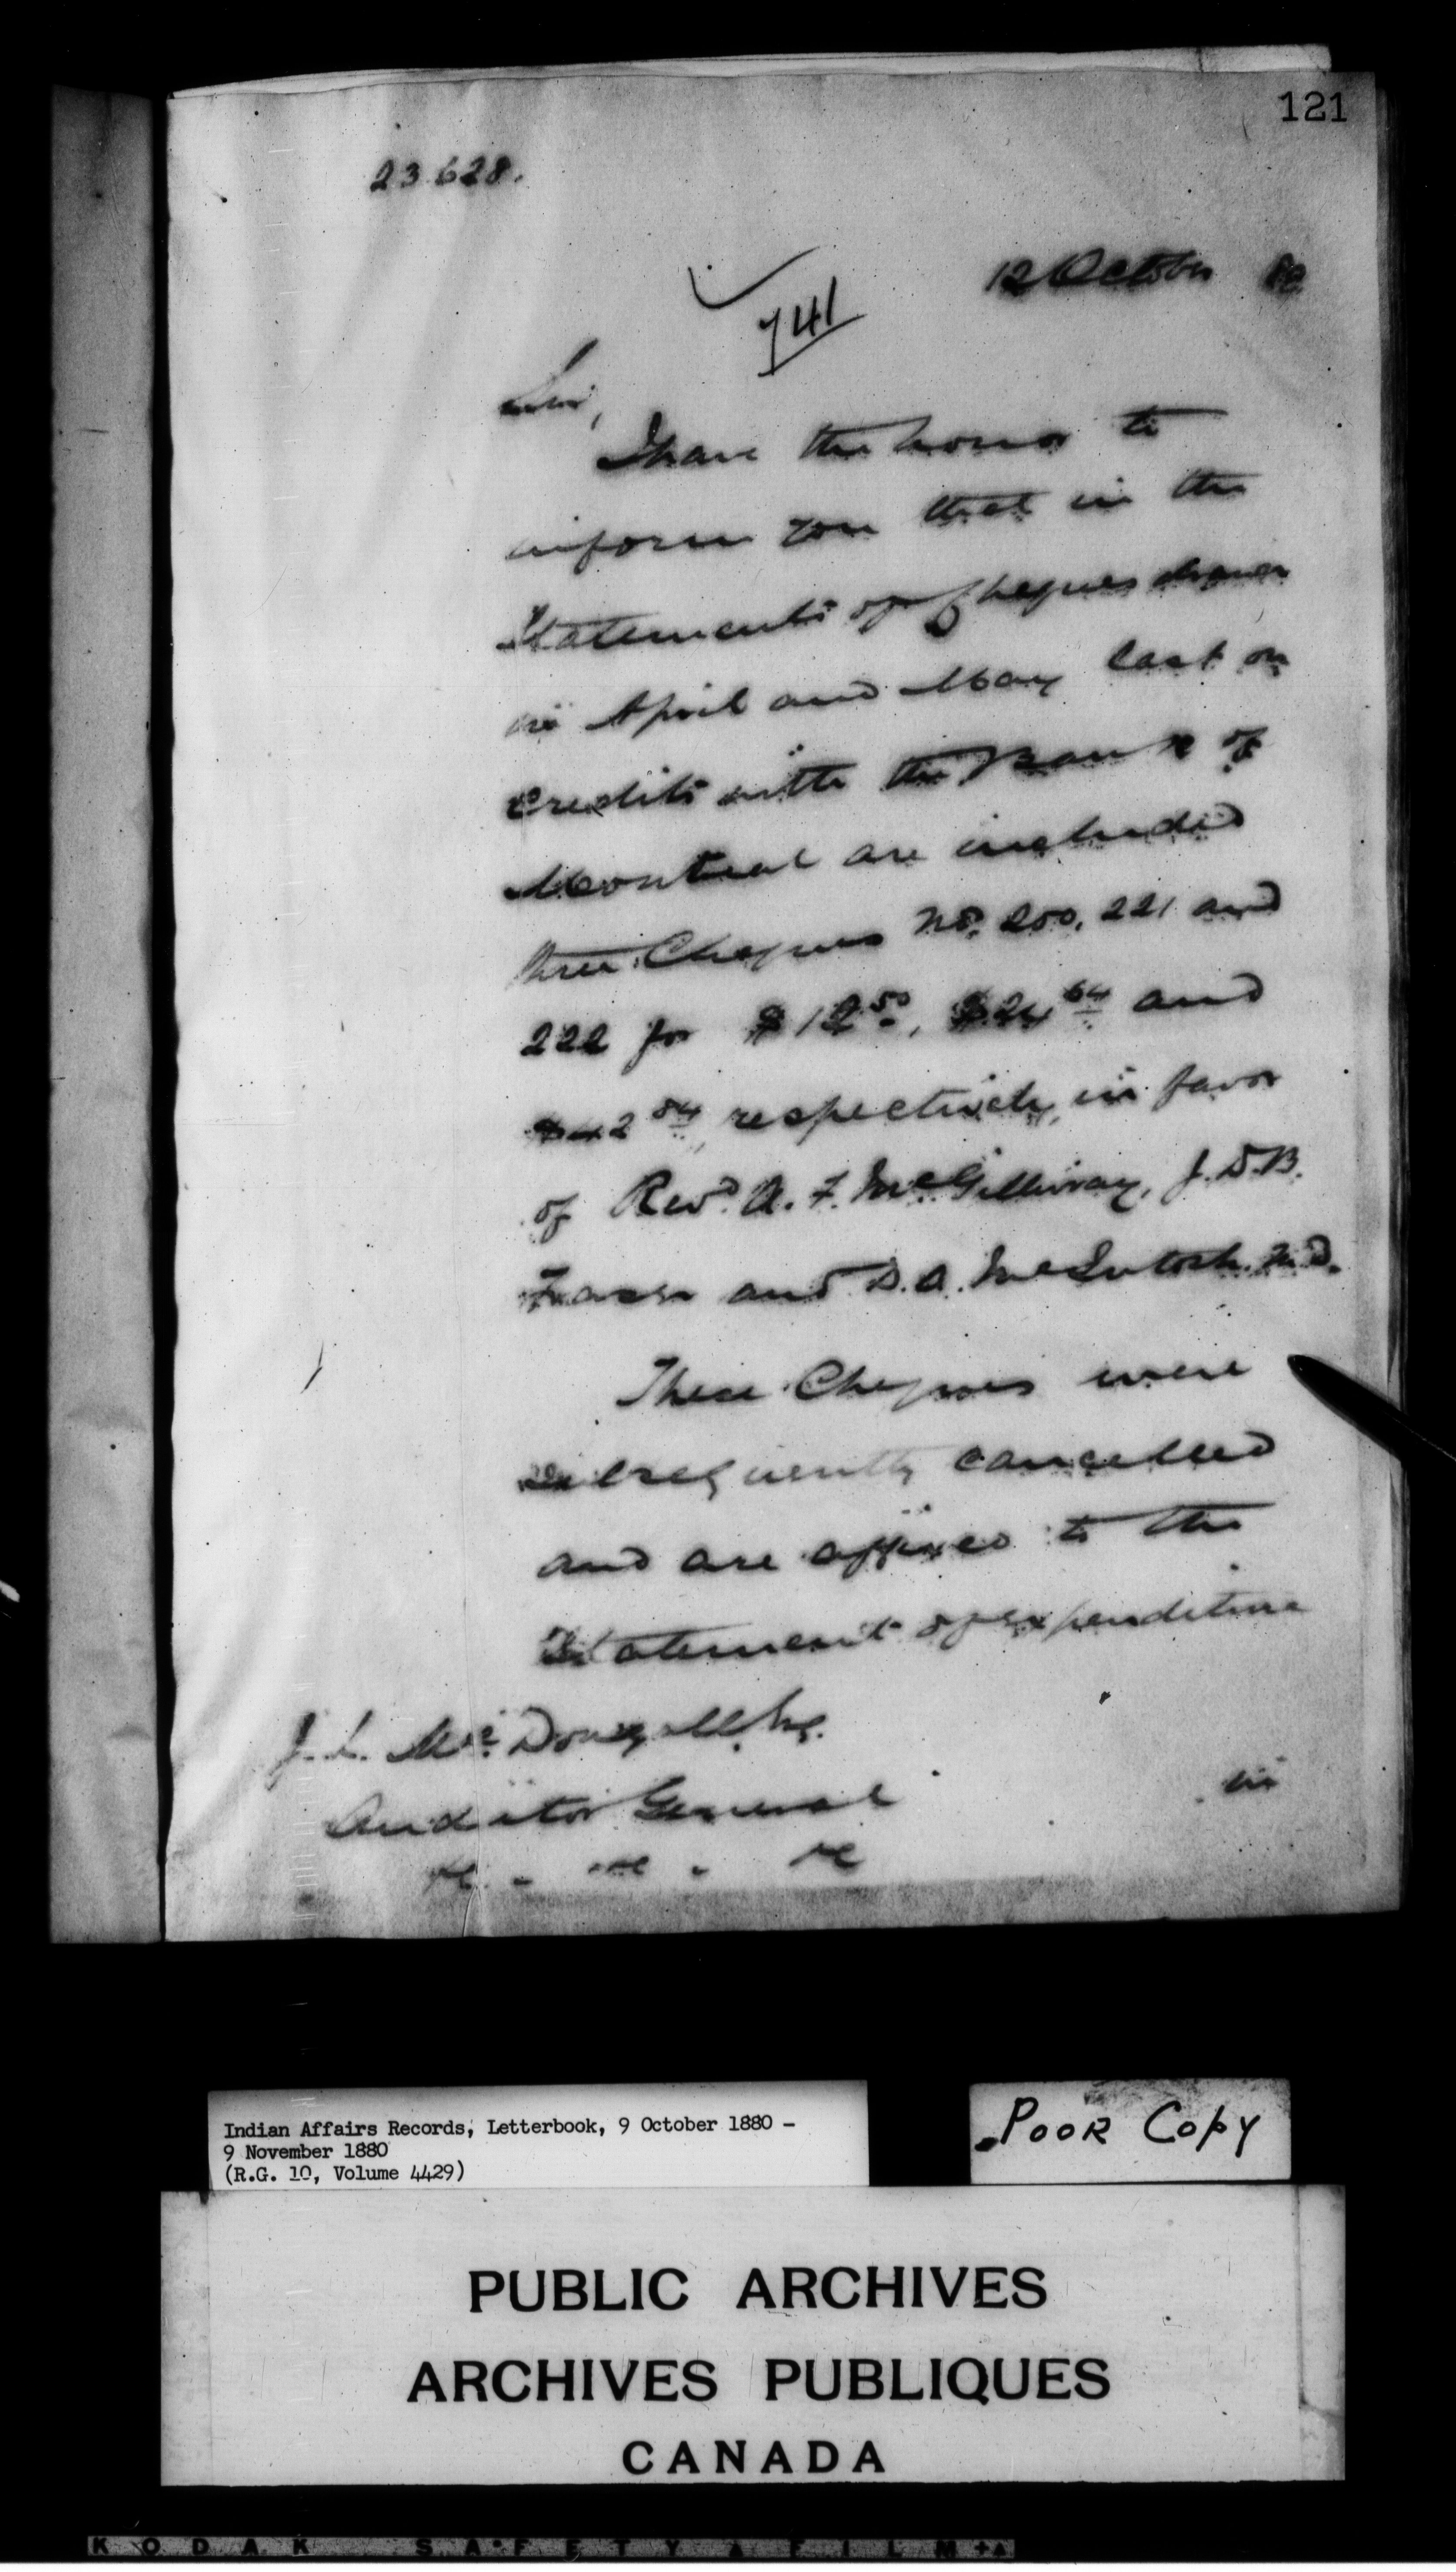 121
23628.
12 October 80
741
Sir,
I have the honor to
inform you that in the
Statements of Cheques drawn
in April and May last on
Credits with the Bank of
Montreal are included
three Cheques No. 200, 221 and
222 for $12.50, $24.64 and
$42.84 respectively, in favor
of Revd. A. F. McGillivray, J. D. B.
Fraser and D. A. McIntosh M.D.
These Cheques were
subsequently cancelled
and are affixed to the
Statement of expenditure
J. L. McDougall Esq.
Auditor General
in
&c. - &c. - &c
Indian Affairs Records, Letterbook, 9 October 1880 -
9 November 1880
(R.G. 10, Volume 4429)
Poor Copy
PUBLIC ARCHIVES
ARCHIVES PUBLIQUES
CANADA
KODAK SAFETY FILM